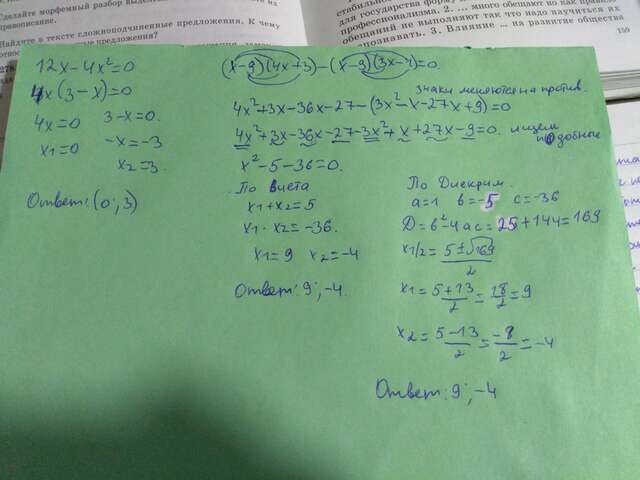 Сделайте морфемный разбор
правописание.
Найдите в тексте сложноподчиненные предложения. К чему
предложения?
для государства
профессионализма. 2. ... много обещают но как правило
обещаний не выполняют так что надо научиться их
опознавать. 3. Влияние ... на развитие общества
159
12x-4x²=0
4x(3-x)=0
4x=0 3-x=0.
x₁=0 -x=-3
x₂=3
Ответ: (0; 3)
(x-9)(4x+3)-(x-9)(3x-1)=0.
знаки меняются на против.
4x²+3x-36x-27-(3x²-x-27x+9)=0
4x²+3x-36x-27-3x²+x+27x-9=0. ищем
подобные
x²-5-36=0.
По Виета
x₁+x₂=5
x₁·x₂=-36.
x₁=9 x₂=-4
Ответ: 9; -4.
По Дискрим.
a=1 b=-5 c=-36
D=b²-4ac=25+144=169
x1/2=5±√169/2
x₁=5+13/2=18/2=9
x₂=5-13/2=-8/2=-4
Ответ: 9; -4